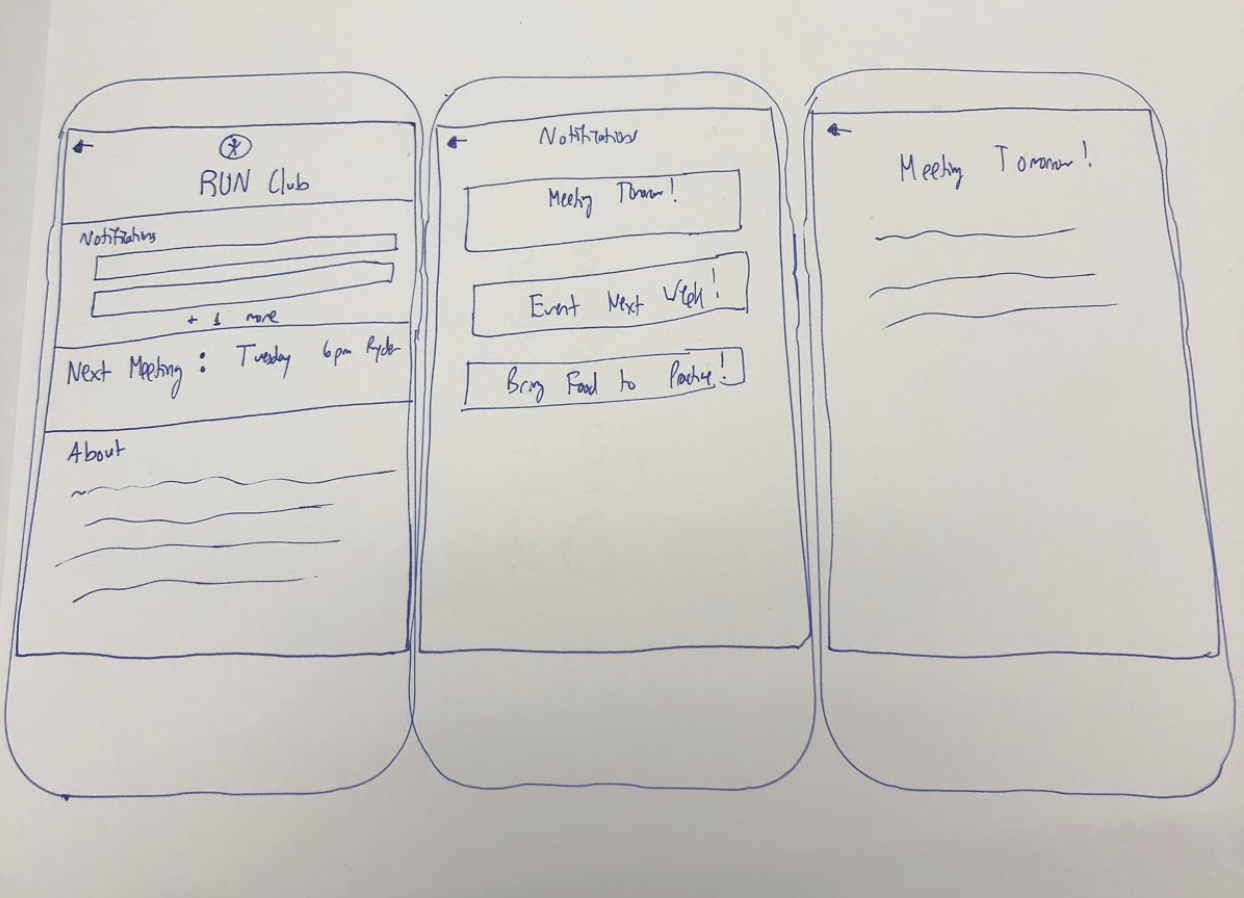 RUN Club
Notifications
+ 1 more
Next Meeting : Tuesday 6pm Ryder
About
Notifications
Meeting Tomorrow!
Event Next Week!
Bring Food to Practice!
Meeting Tomorrow!